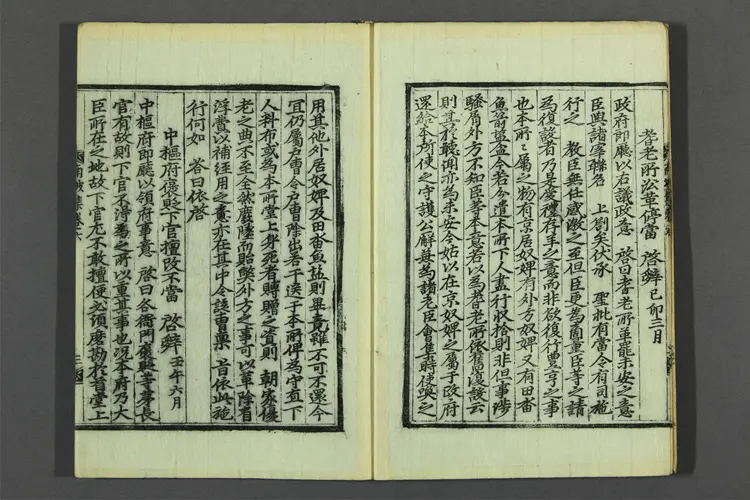 耆老所沿革停當 啓辭 己卯三月
政府郎廳以右議政意 啓曰耆老所並罷未安之意
臣與諸宰聯名 上劄矣伏承 聖批有當令有司施
行之 敎臣無任感激之至但臣更爲商量臣等之請
爲復設者乃是愛禮存羊之意而非欲復行豊亨之事
也本所之屬之物有京居奴婢有外方奴婢又有田畓
魚箭鹽盆今若分遣本所下人盡行收拾則非但事涉
騷屑外方不知臣等本意若以爲耆老所依舊復設云
則其於聽聞亦爲未安今姑以在京奴婢之屬于政府
還給本所使之守護公廨每爲諸老臣會集時使喚之
用其他外居奴婢及田畓魚鹽則畢竟雖不可不還今
宜仍屬戶曹令戶曹除出若干送于本所俾爲守直下
人料布或爲本所堂上身死者賻贈之資則 朝家優
老之典不至全然廢墜而貽弊外方之事可以革除省
浮費以補經用之意亦在其中令該曹稟 旨依此施
行何如 答曰依啓
中樞府褒貶下官擅改不當 啓辭 壬午六月
中樞府郎廳以領府事意 啓曰各衙門褒貶等第長
官有故則下官不得爲之所以重其事也況本府乃大
臣所在之地故下官尤不敢擅便必須磨勘於首堂上